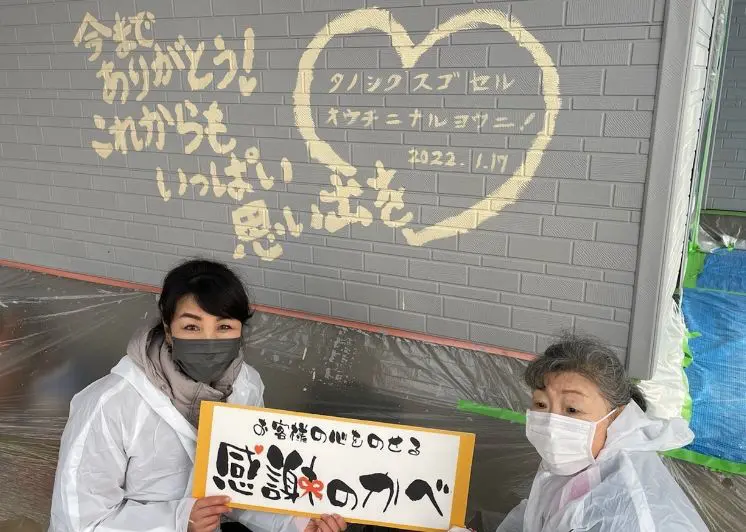 今まで
ありがとう!
これからも
いっぱい
思い出を
タノシクスゴセル
オウチニナルヨウニ!
2022.1.17
お客様の心をのせる
感謝のかべ